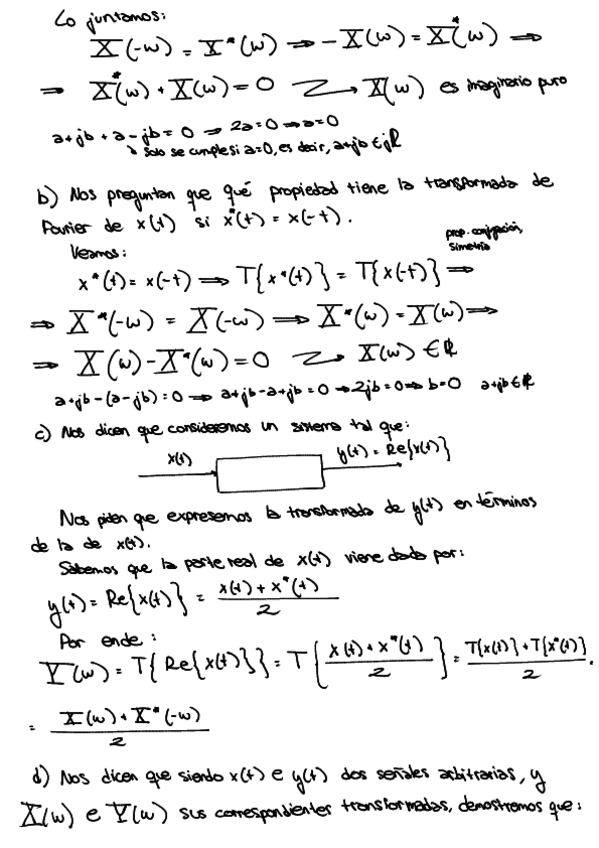 Lo juntamos:
X(-ω) = X*(ω) ⇒ -X(ω) = X*(ω) ⇒
⇒ X*(ω) + X(ω) = 0 → X(ω) es imaginario puro
a+jb + a-jb = 0 ⇒ 2a=0 ⇒ a=0
↳ Solo se cumple si a=0, es decir, a+jb ∈ jℝ
b) Nos preguntan que qué propiedad tiene la transformada de
Fourier de x(t) si x*(t) = x(-t).
Veamos:
prop. conjugación,
simetría
x*(t) = x(-t) ⇒ T{x*(t)} = T{x(-t)} ⇒
⇒ X*(-ω) = X(-ω) ⇒ X*(ω) = X(ω) ⇒
⇒ X(ω) - X*(ω) = 0 → X(ω) ∈ ℝ
a+jb-(a-jb) = 0 ⇒ a+jb-a+jb = 0 ⇒ 2jb = 0 ⇒ b=0 a+jb ∈ ℝ
c) Nos dicen que consideremos un sistema tal que:
x(t) y(t) = Re{x(t)}
Nos piden que expresemos la transformada de y(t) en términos
de la de x(t).
Sabemos que la parte real de x(t) viene dada por:
y(t) = Re{x(t)} = (x(t) + x*(t))/2
Por ende:
Y(ω) = T{Re{x(t)}} = T{(x(t) + x*(t))/2} = (T{x(t)} + T{x*(t)})/2.
= (X(ω) + X*(-ω))/2
d) Nos dicen que siendo x(t) e y(t) dos señales arbitrarias, y
X(ω) e Y(ω) sus correspondientes transformadas, demostremos que: